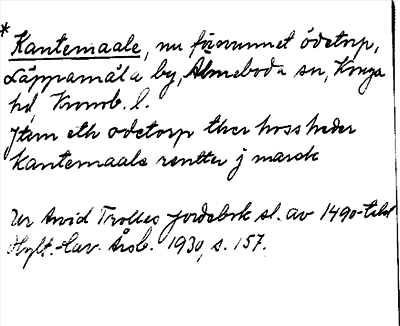 * Kantemaale, nu försvunnet ödetorp,
Läppamåla by, Almeboda sn, Konga
hd, Kronob. l.
Jtem eth ödetorp ther hoss heder
Kantemaale rentter j marck
Ur Arvid Trolles jordebok sl. av 1490-talet
Hylt.-Cav. Årsb. 1930, s. 157.